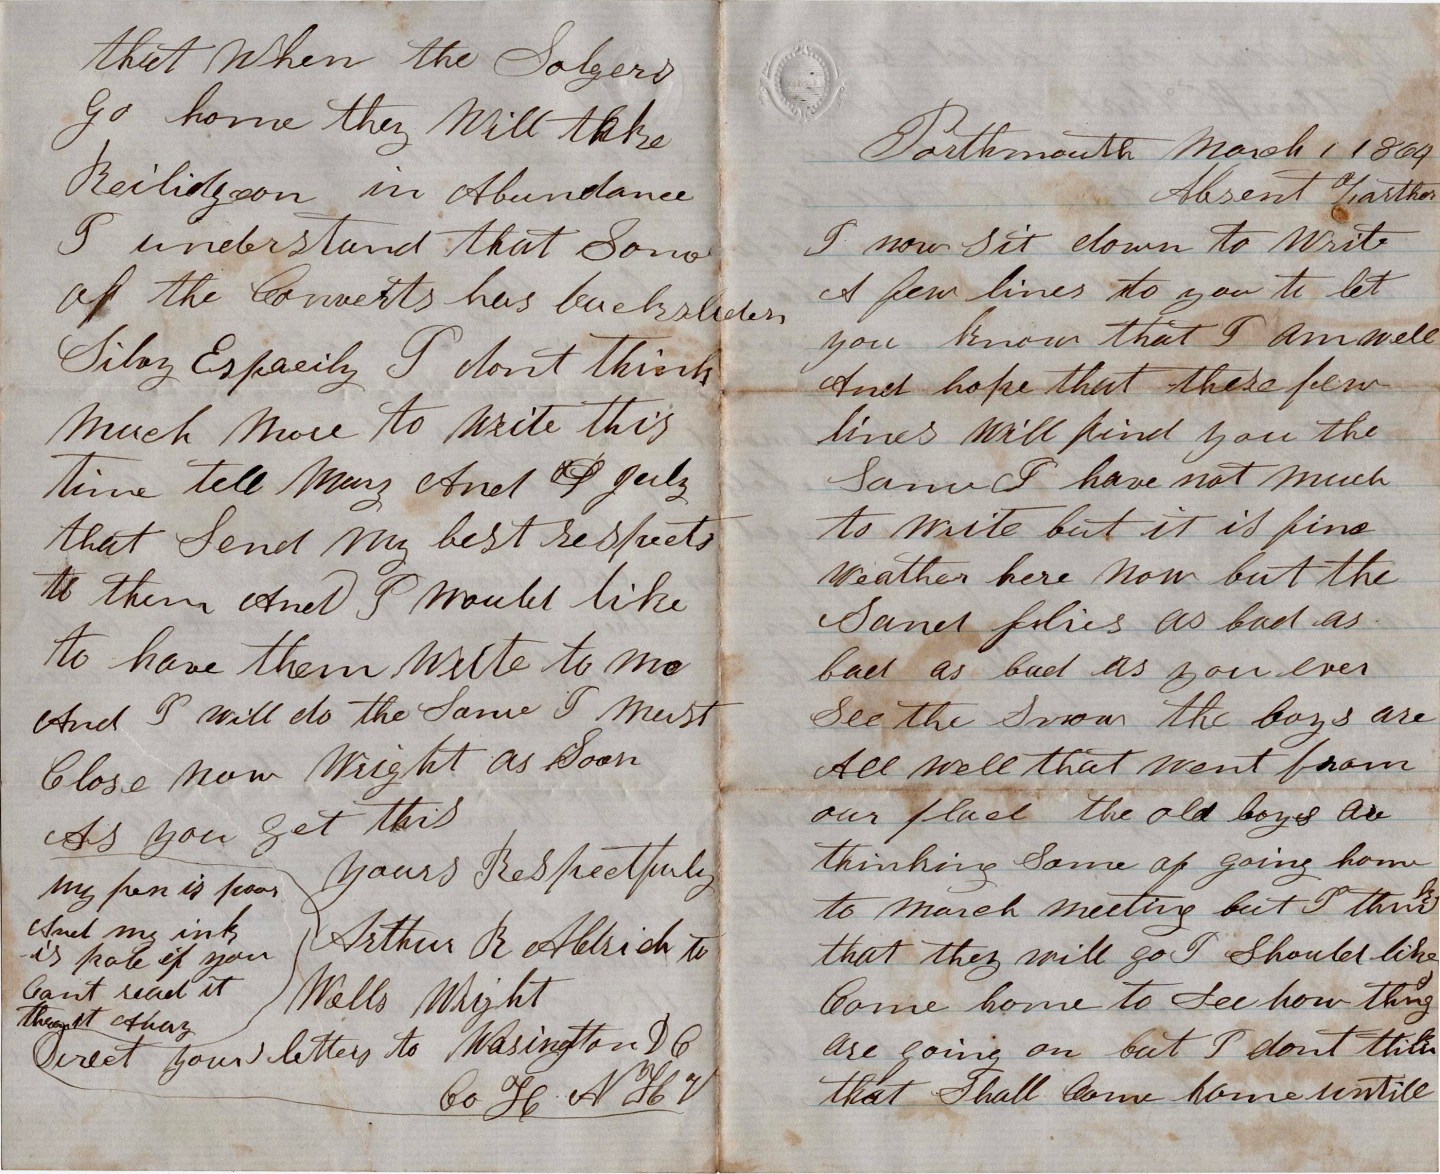 Porthmouth March 1 1864
Absent Farther
I now sit down to Write
A few lines to you to let
you know that I am well
And hope that these few
lines will find you the
Same I have not much
to write but it is fine
weather here now but the
Sand flies as bad as
bad as bad as you ever
See the Snow the boys are
All well that went from
our place the old boys are
thinking Some of going home
to march meeting but I think
that they will go I Should like
Come home to See how thing
are going on but I dont think
that I hall Come home untill
that When the Solgers
Go home they Will take
Reilidgeon in Abundance
I understand that Some
of the Converts has backsliden
Silvy Espacily I dont think
Much More to Write this
time tell Mary And July
that Send My best respects
to them And I Would like
to have them Write to me
And I will do the Same I Must
Close now Wright as Soon
As you get this
yours Respectfuly
Arthur R Aldrich to
Wells Wright
my pen is poor
And my ink
is pale if you
Cant read it
Direct your letters to Wasington D C
Co H N H V